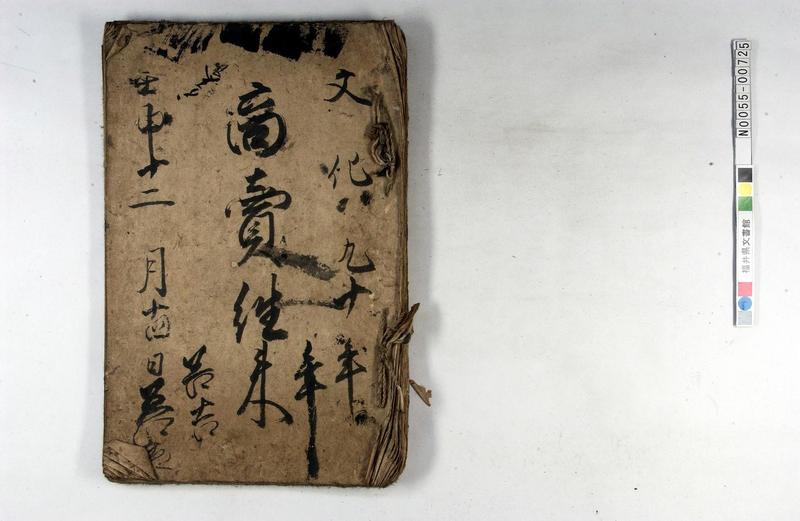 文化九十年
年
商賣徃来
壬申十二月十四日
N0055-00725
福井県文書館